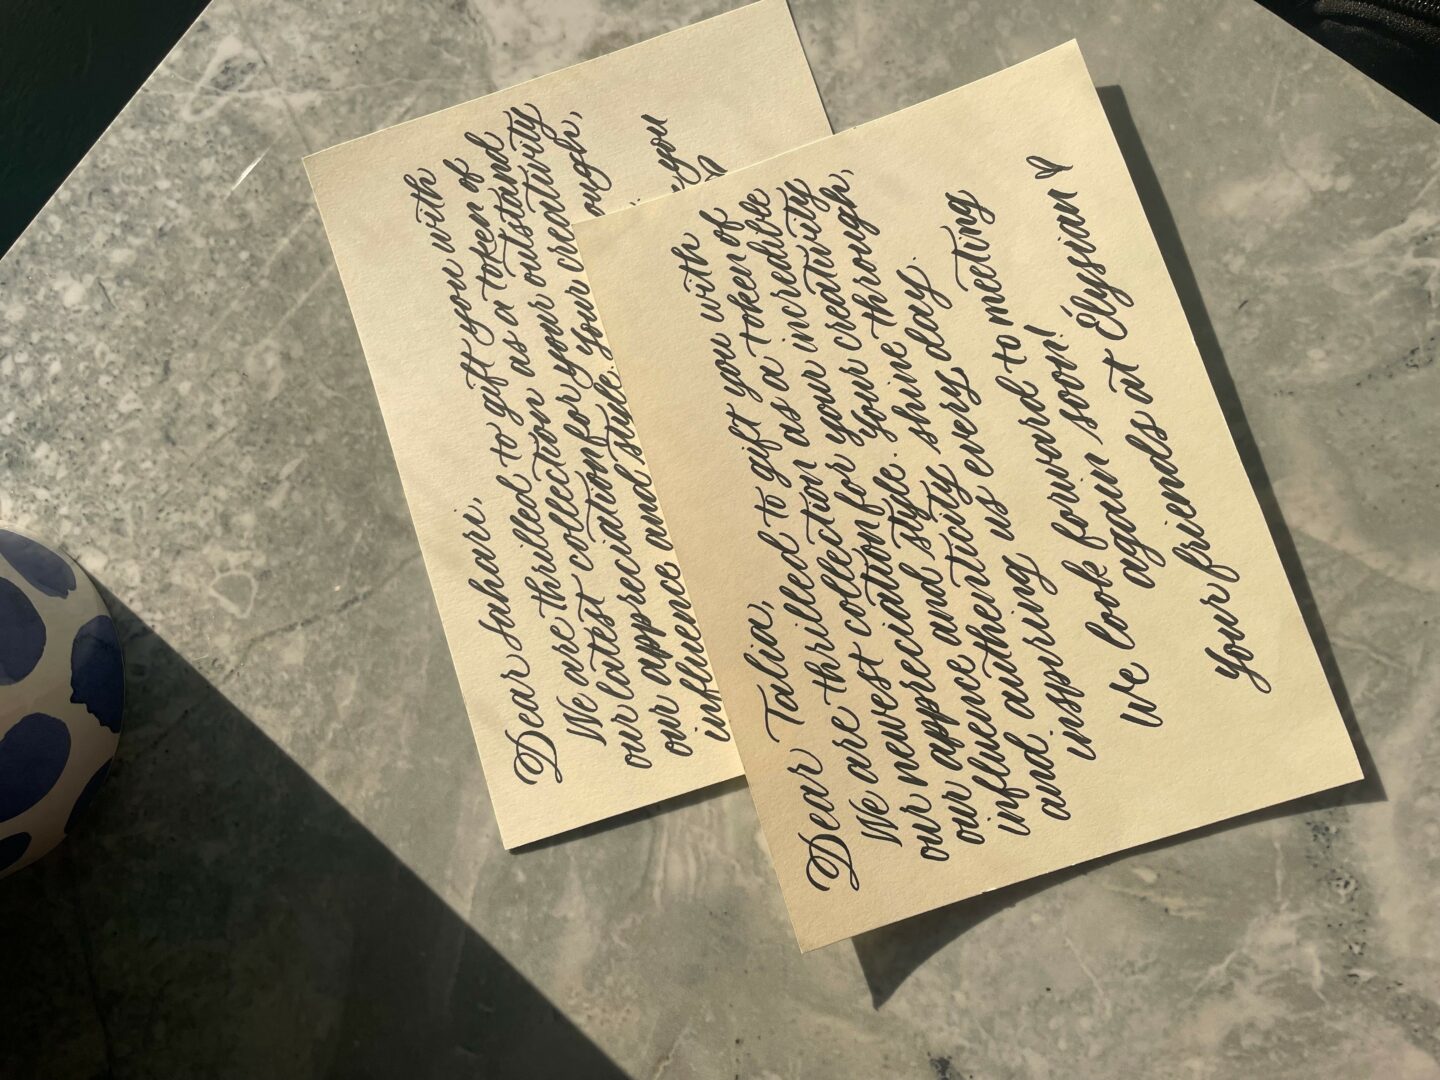 Dear Sahari,
We are thrilled to gift you with
our latest collection as a token of
our appreciation for your outstand
influence and style. Your creativity
ough,
you
Dear Talia,
We are thrilled to gift you with
our newest collection as a token of
our appreciation for your incredible
influence and style. Your creativity
and authenticity shine through,
inspiring us every day.
We look forward to meeting
again soon!
Your friends at Élysian